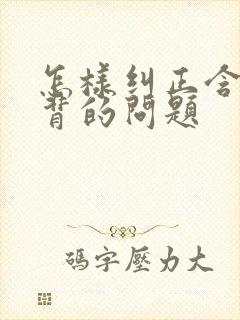 怎樣糾正含
背的問題
碼字壓力大